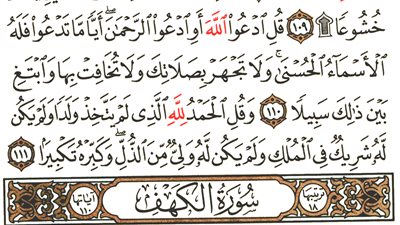 خُشُوعًا ۩ ١٠٩ قُلِ ادْعُوا اللَّهَ أَوِ ادْعُوا الرَّحْمَٰنَ ۖ أَيًّا مَا تَدْعُوا فَلَهُ
الْأَسْمَاءُ الْحُسْنَىٰ ۚ وَلَا تَجْهَرْ بِصَلَاتِكَ وَلَا تُخَافِتْ بِهَا وَابْتَغِ
بَيْنَ ذَٰلِكَ سَبِيلًا ١١٠ وَقُلِ الْحَمْدُ لِلَّهِ الَّذِي لَمْ يَتَّخِذْ وَلَدًا وَلَمْ يَكُنْ
لَهُ شَرِيكٌ فِي الْمُلْكِ وَلَمْ يَكُنْ لَهُ وَلِيٌّ مِنَ الذُّلِّ ۖ وَكَبِّرْهُ تَكْبِيرًا ١١١
ترتيبها ١٨ سُورَةُ الْكَهْفِ آياتها ١١٠